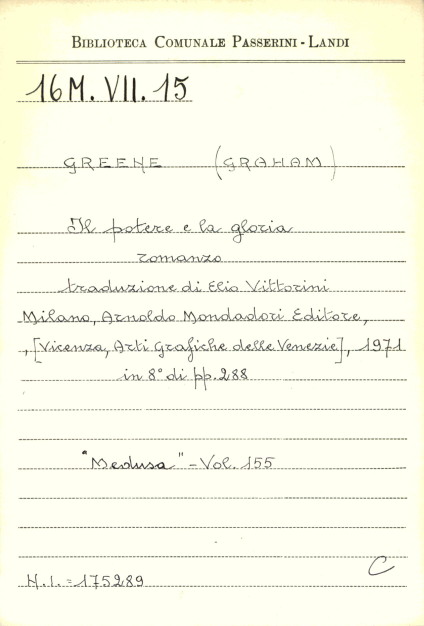 BIBLIOTECA COMUNALE PASSERINI - LANDI
16 M. VII. 15
GREENE (GRAHAM)
Il potere e la gloria
romanzo
traduzione di Elio Vittorini
Milano, Arnoldo Mondadori Editore,
, [Vicenza, Arti Grafiche delle Venezie], 1971
in 8° di pp. 288
"Medusa" - Vol. 155
C
N.I. = 175289